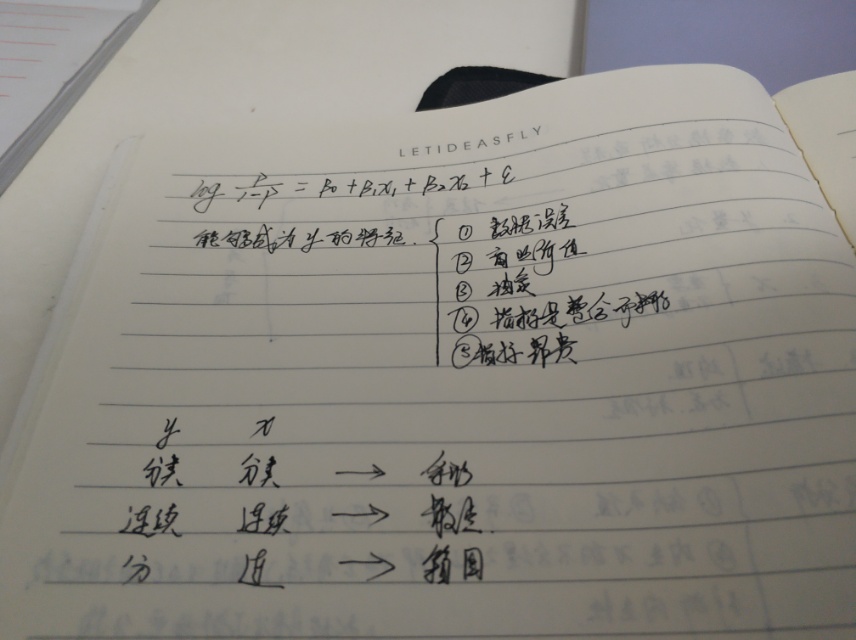 LETIDEASFLY
log P/1-P = β0 + β1x1 + β2x2 + ε
能够成为y的特征
① 数据误差
② 商业价值
③ 稳定
④ 指标是整合可
⑤ 指标昂贵
y x
分类 分类 →
连续 连续 → 散点
分 连 → 箱图